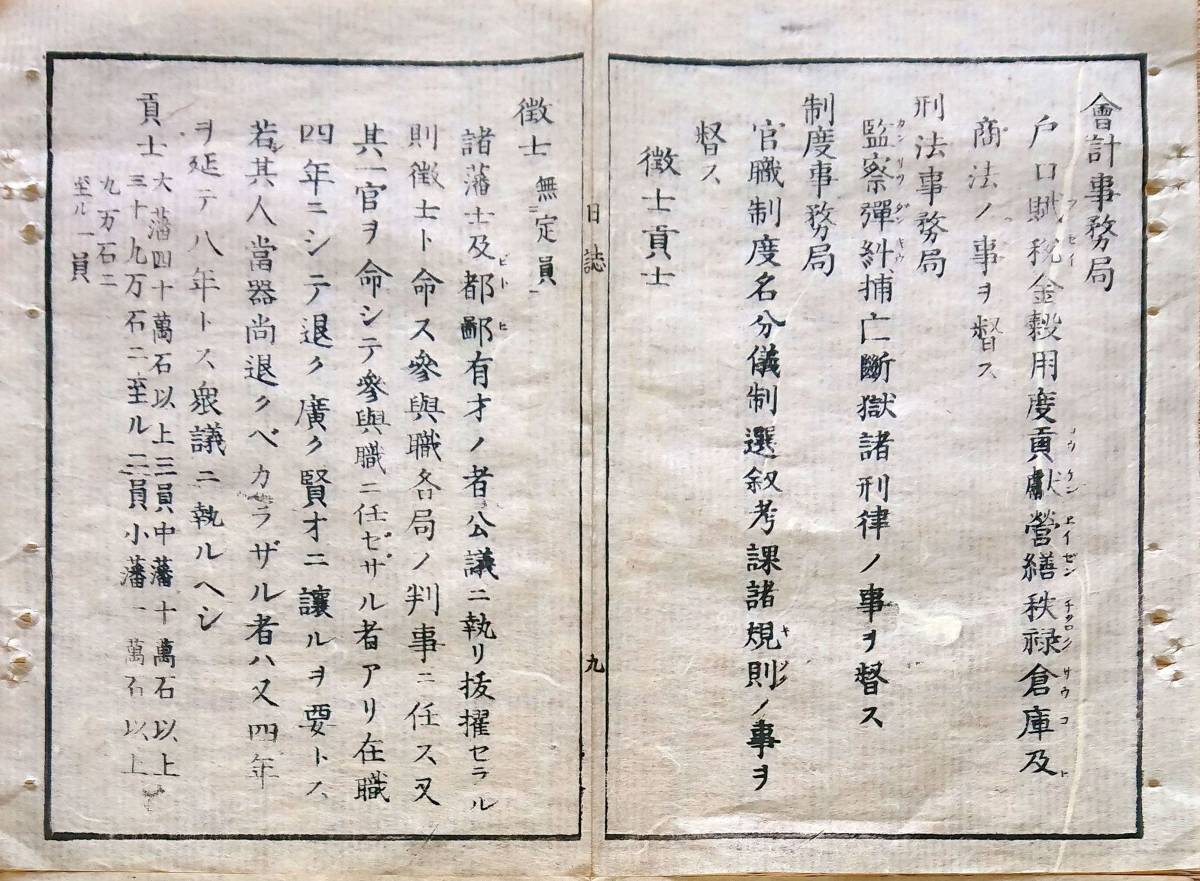 會計事務局
戸口賦税金穀用度貢獻營繕秩禄倉庫及
商法ノ事ヲ督ス
刑法事務局
監察彈糾捕亡斷獄諸刑律ノ事ヲ督ス
制度事務局
官職制度名分儀制選叙考課諸規則ノ事ヲ
督ス
徴士貢士
日誌 九
徴士 無定員
諸藩士及都鄙有才ノ者公議ニ執リ抜擢セラル
則徴士ト命ス參與職各局ノ判事ニ任ス又
其一官ヲ命シテ參與職ニ任セザル者アリ在職
四年ニシテ退ク廣ク賢才ニ讓ルヲ要トス
若其人當器尚退クベカラザル者ハ又四年
ヲ延テ八年トス衆議ニ執ルヘシ
貢士 大藩四十萬石以上三員中藩十萬石以上
三十九万石ニ至ル二員小藩一萬石以上
九万石ニ
至ル一員